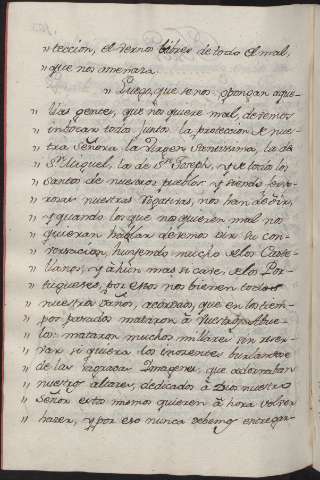 " teccion, el vernos libres de todo el mal,
" que nos amenaza.
" Luego, que se nos opongan aque-
" llas gentes, que nos quiere mal, devemos
" invocar todos juntos la proteccion de nues-
" tra Señora la Virgen Santissima, la de
" Sn. Miguel, la de Sn. Joseph, y de todos los
" Santos de nuestros pueblos, y siendo fervo-
" rosas nuestras rogativas, nos han de oir,
" y quando los que nos quieren mal nos
" quieran hablar devemos oir su con-
" versacion, huyendo mucho de los Caste-
" llanos, y aun mas si cave de los Por-
" tugueses, por esso nos vienen todos
" nuestros daños, acordaos, que en los tiem-
" pos passados mataron à nuestros Abue-
" los, mataron muchos millares sin reser-
" var si quiera los inocentes burlandose
" de las sagradas Imagenes, que adornaban
" nuestro altares, dedicados à Dios nuestro
" Señor esto mismo quieren ahora volver
" hazer, y por eso nunca devemos entregar-